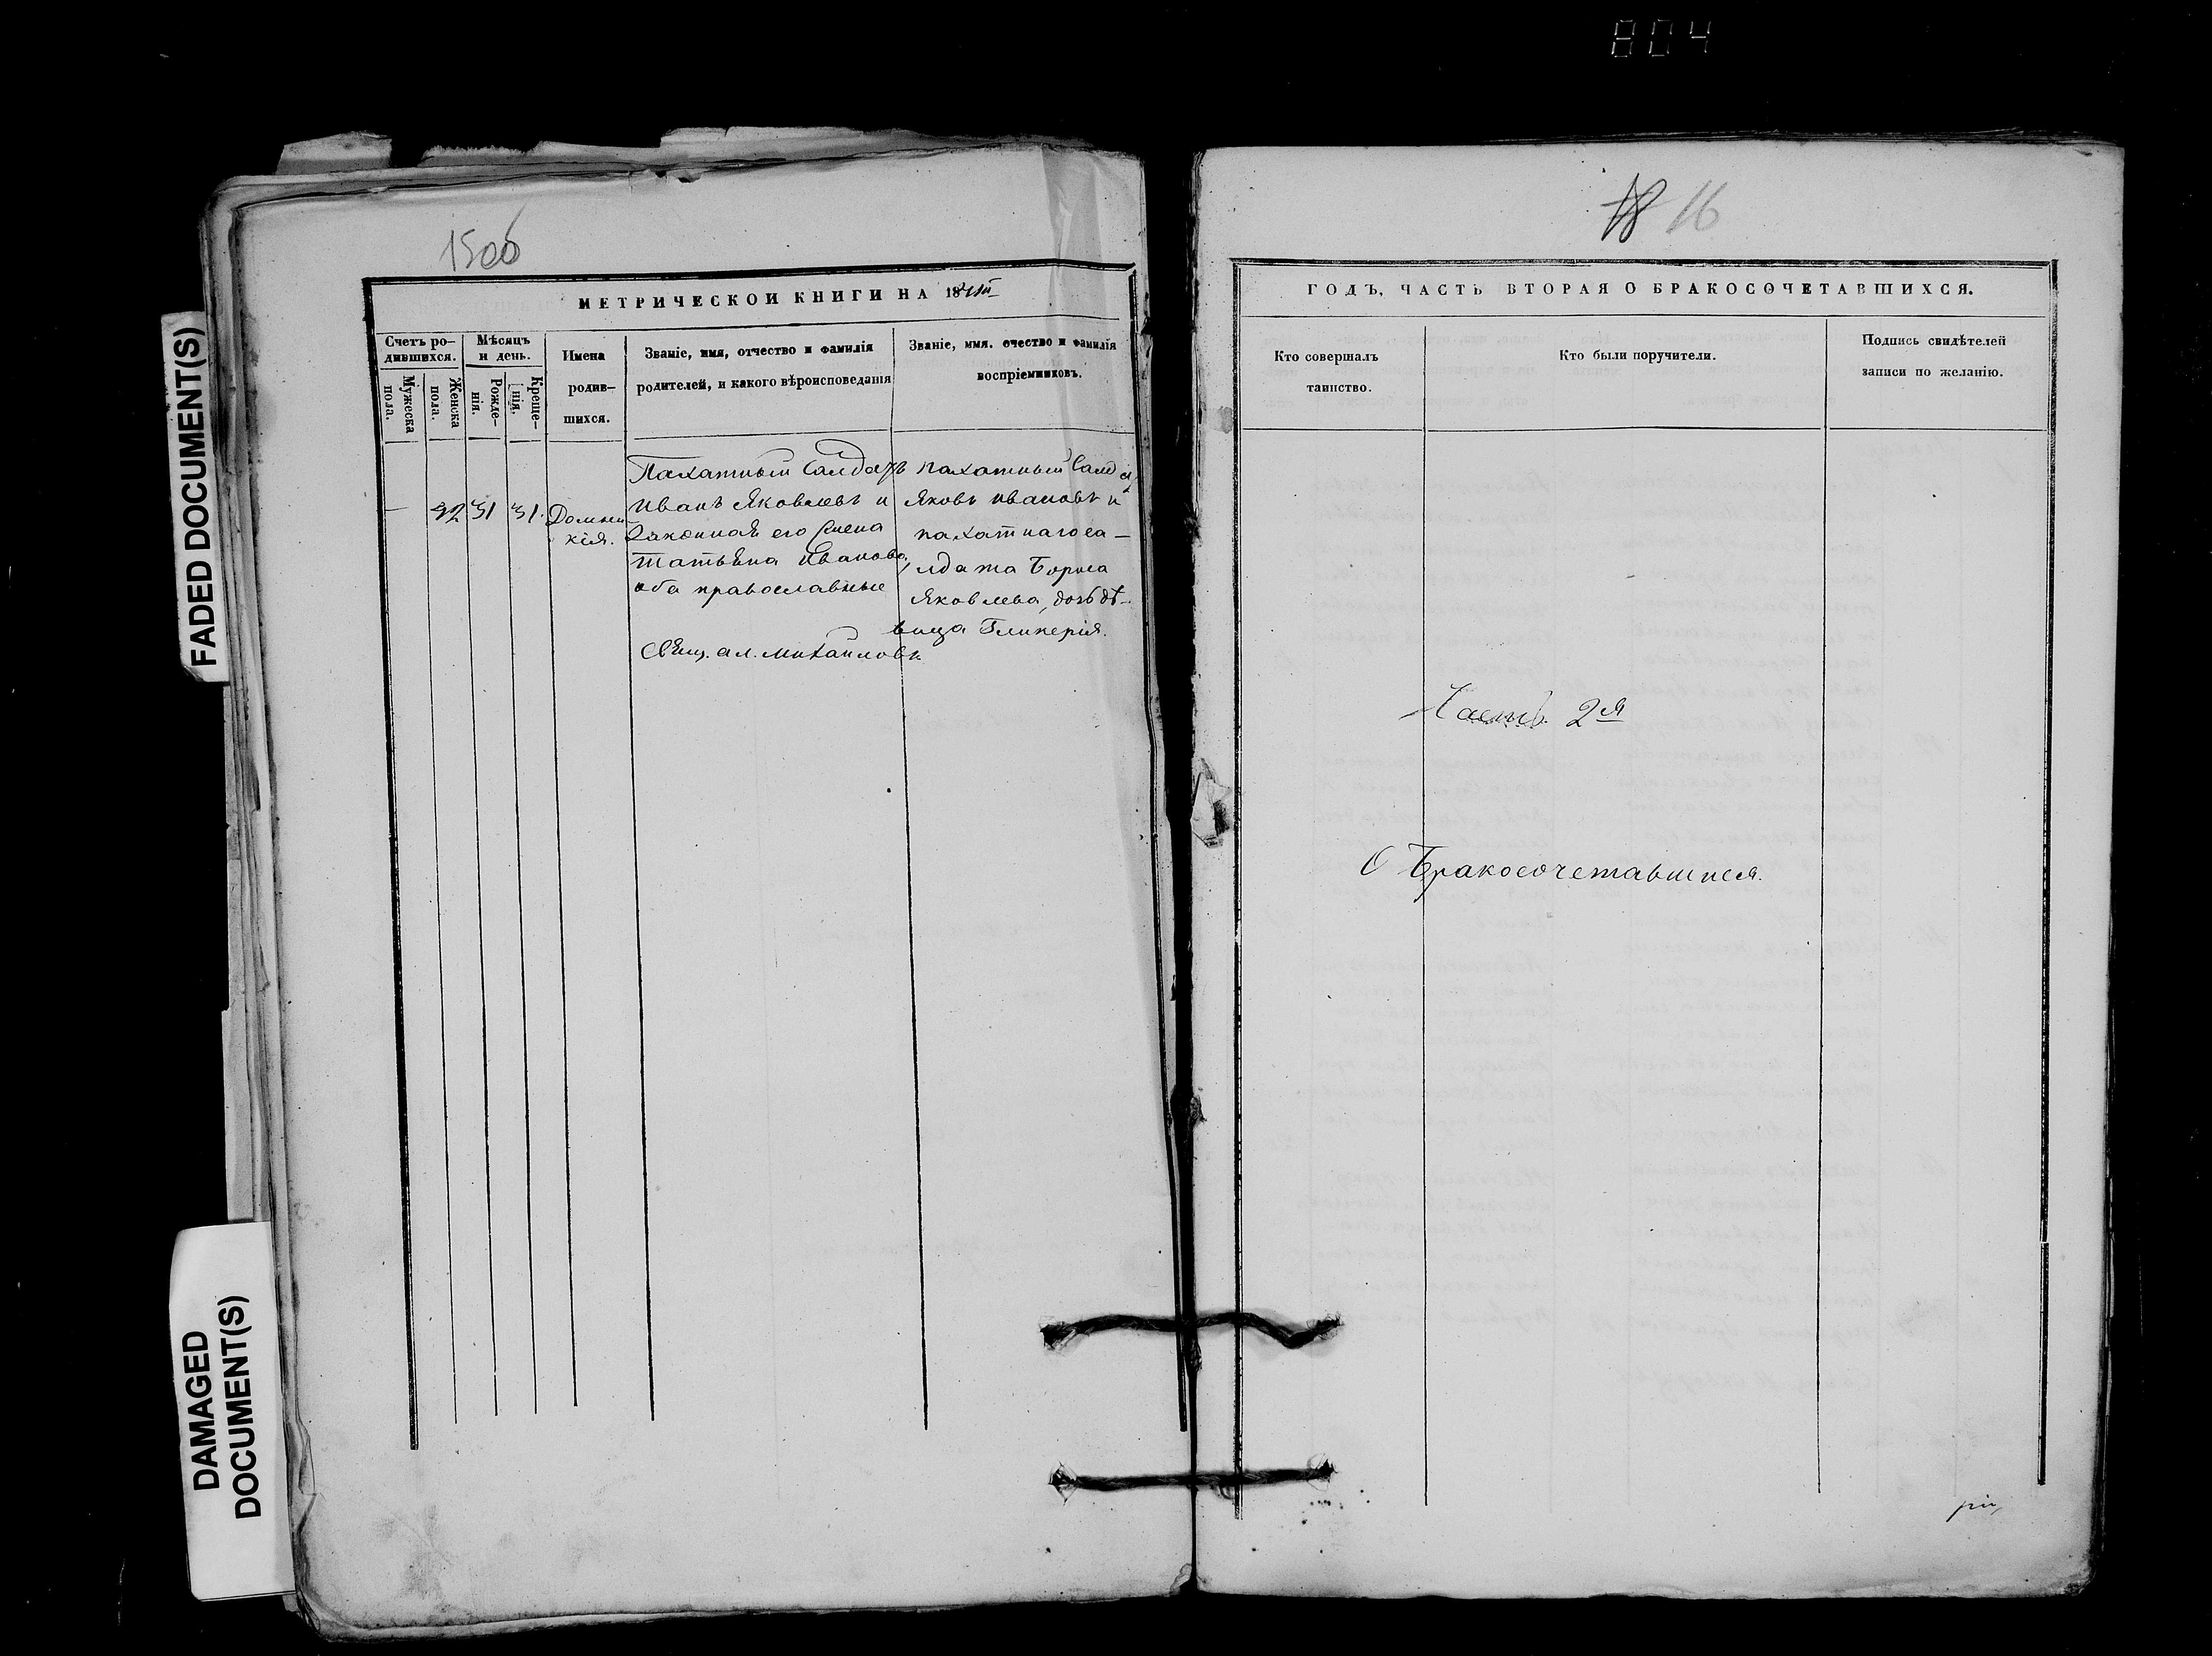 804
FADED DOCUMENT(S)
DAMAGED
DOCUMENT(S)
15об
МЕТРИЧЕСКОЙ КНИГИ НА 18
Счетъ ро-
дившихся.
Мужеска
пола.
Женска
пола.
Мѣсяцъ
и день.
Рожде-
нія.
Креще-
нія.
Имена
родив-
шихся.
Званіе, имя, отчество и фамилія
родителей, и какого вѣроисповеданія
Званіе, имя. очество и фамилія
воспріемниковъ.
— 32 31 31.
Домни
кія.
Пахатный Салдатъ
Иванъ Яковлевъ и
Законная его Жена
Татьяна Иванова,
оба православные
Свящ. ал. Михайловъ
пахатный Салд
Яковъ Ивановъ и
пахатнаго са-
лдата Бориса
Яковлева, дочь дѣ-
вица Гликерія.
16
ГОДЪ, ЧАСТЬ ВТОРАЯ О БРАКОСОЧЕТАВШИХСЯ.
Кто совершалъ
таинство.
Кто были поручители.
Подпись свидѣтелей
записи по желанію.
Часть 2я
О Бракосочетавшихся.